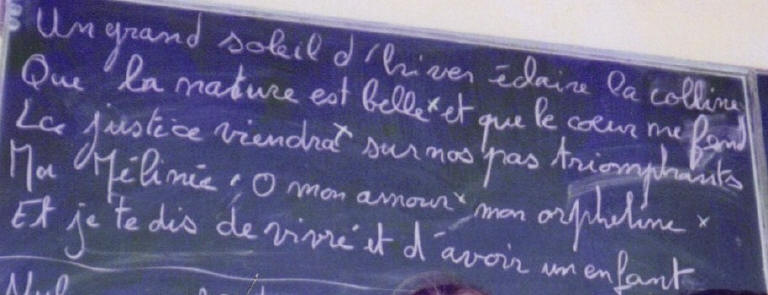 Un grand soleil d'hiver éclaire la colline
Que la nature est belle x et que le cœur me fend
La justice viendra x sur nos pas triomphants
Ma Mélinée, O mon amour x mon orpheline x
Et je te dis de vivre et d'avoir un enfant